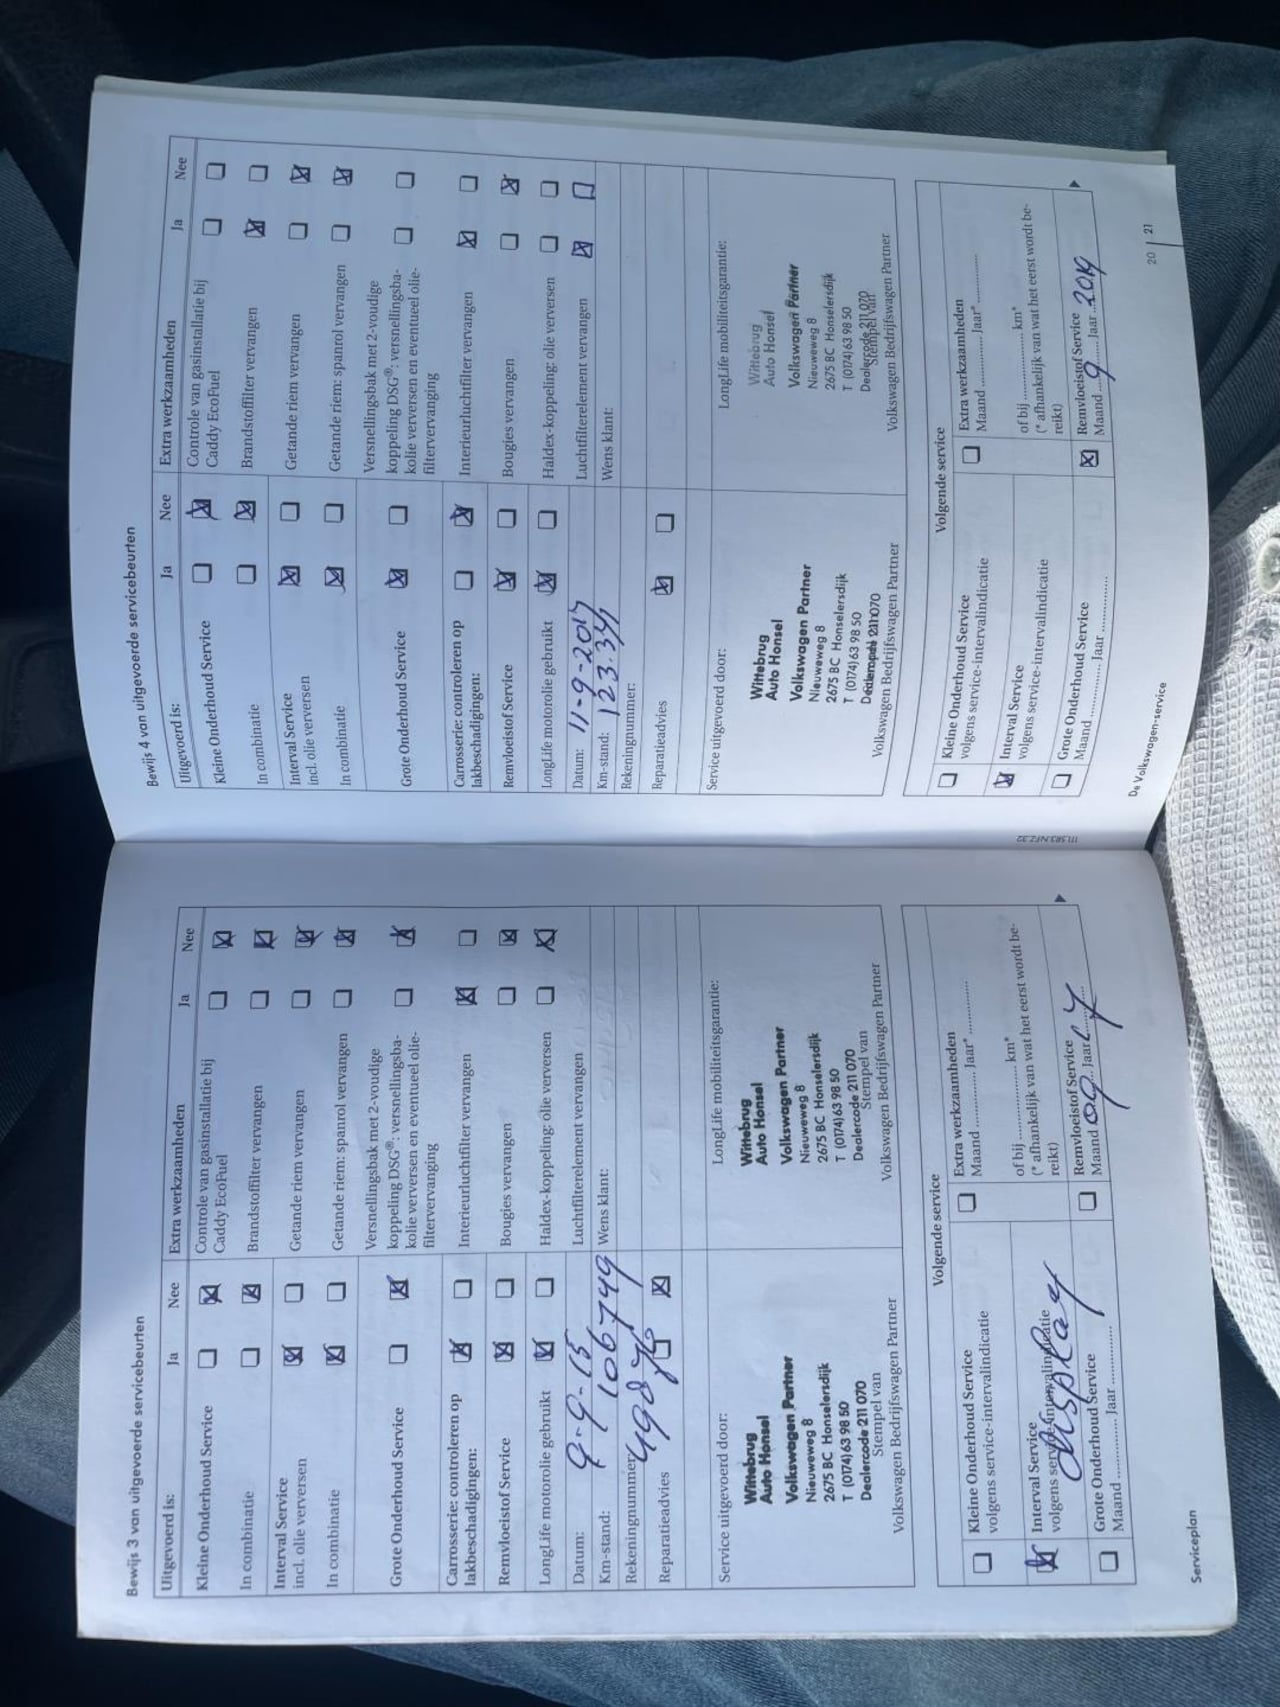 Bewijs 3 van uitgevoerde servicebeurten
Uitgevoerd is: Ja Nee
Kleine Onderhoud Service
In combinatie
Interval Service
incl. olie verversen
In combinatie
Grote Onderhoud Service
Carrosserie: controleren op
lakbeschadigingen:
Remvloeistof Service
LongLife motorolie gebruikt
Datum: 9-9-15
Km-stand: 106749
Rekeningnummer:
Reparatieadvies
Extra werkzaamheden Ja Nee
Controle van gasinstallatie bij
Caddy EcoFuel
Brandstoffilter vervangen
Getande riem vervangen
Getande riem: spanrol vervangen
Versnellingsbak met 2-voudige
koppeling DSG®: versnellingsba-
kolie verversen en eventueel olie-
filtervervanging
Interieurluchtfilter vervangen
Bougies vervangen
Haldex-koppeling: olie verversen
Luchtfilterelement vervangen
Wens klant:
Service uitgevoerd door:
Wittebrug
Auto Honsel
Volkswagen Partner
Nieuweweg 8
2675 BC Honselersdijk
T (0174) 63 98 50
Dealercode 211 070
Stempel van
Volkswagen Bedrijfswagen Partner
LongLife mobiliteitsgarantie:
Wittebrug
Auto Honsel
Volkswagen Partner
Nieuweweg 8
2675 BC Honselersdijk
T (0174) 63 98 50
Dealercode 211 070
Stempel van
Volkswagen Bedrijfswagen Partner
Volgende service
Kleine Onderhoud Service
volgens service-intervalindicatie
Interval Service
volgens service-intervalindicatie
display
Grote Onderhoud Service
Maand ............ Jaar ............
Extra werkzaamheden
Maand ............ Jaar* ............
of bij ............ km*
(* afhankelijk van wat het eerst wordt be-
reikt)
Remvloeistof Service
Maand 09 Jaar 17
Serviceplan
Bewijs 4 van uitgevoerde servicebeurten
Uitgevoerd is: Ja Nee
Kleine Onderhoud Service
In combinatie
Interval Service
incl. olie verversen
In combinatie
Grote Onderhoud Service
Carrosserie: controleren op
lakbeschadigingen:
Remvloeistof Service
LongLife motorolie gebruikt
Datum: 11-9-2017
Km-stand: 123.341
Rekeningnummer:
Reparatieadvies
Extra werkzaamheden Ja Nee
Controle van gasinstallatie bij
Caddy EcoFuel
Brandstoffilter vervangen
Getande riem vervangen
Getande riem: spanrol vervangen
Versnellingsbak met 2-voudige
koppeling DSG®: versnellingsba-
kolie verversen en eventueel olie-
filtervervanging
Interieurluchtfilter vervangen
Bougies vervangen
Haldex-koppeling: olie verversen
Luchtfilterelement vervangen
Wens klant:
Service uitgevoerd door:
Wittebrug
Auto Honsel
Volkswagen Partner
Nieuweweg 8
2675 BC Honselersdijk
T (0174) 63 98 50
Dealercode 211 070
Volkswagen Bedrijfswagen Partner
LongLife mobiliteitsgarantie:
Wittebrug
Auto Honsel
Volkswagen Partner
Nieuweweg 8
2675 BC Honselersdijk
T (0174) 63 98 50
Dealercode 211 070
Stempel van
Volkswagen Bedrijfswagen Partner
Volgende service
Kleine Onderhoud Service
volgens service-intervalindicatie
Interval Service
volgens service-intervalindicatie
Grote Onderhoud Service
Maand ............ Jaar ............
Extra werkzaamheden
Maand ............ Jaar* ............
of bij ............ km*
(* afhankelijk van wat het eerst wordt be-
reikt)
Remvloeistof Service
Maand 9 Jaar 2019
De Volkswagen-service
20 | 21